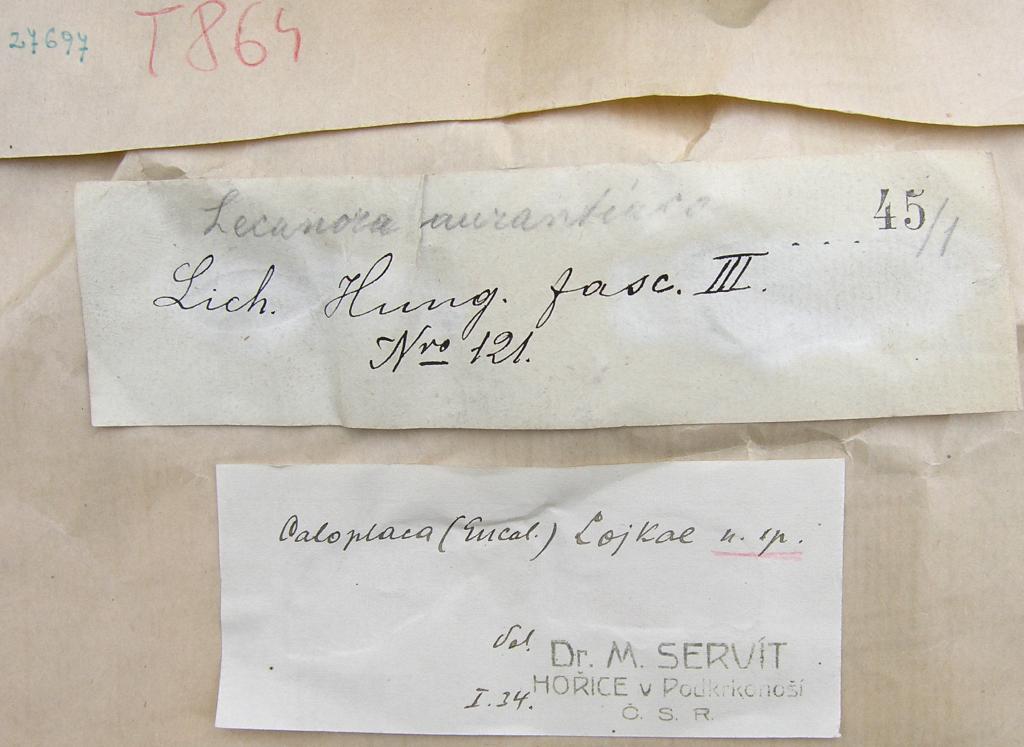 27697 T864
Lecanora aurantiaca
45/1
Lich. Hung. fasc. III.
Nro 121.
Caloplaca (Eucal.) Lojkae n. sp.
Dr. M. SERVÍT
I. 34. HOŘICE v Podkrkonoší
Č. S. R.